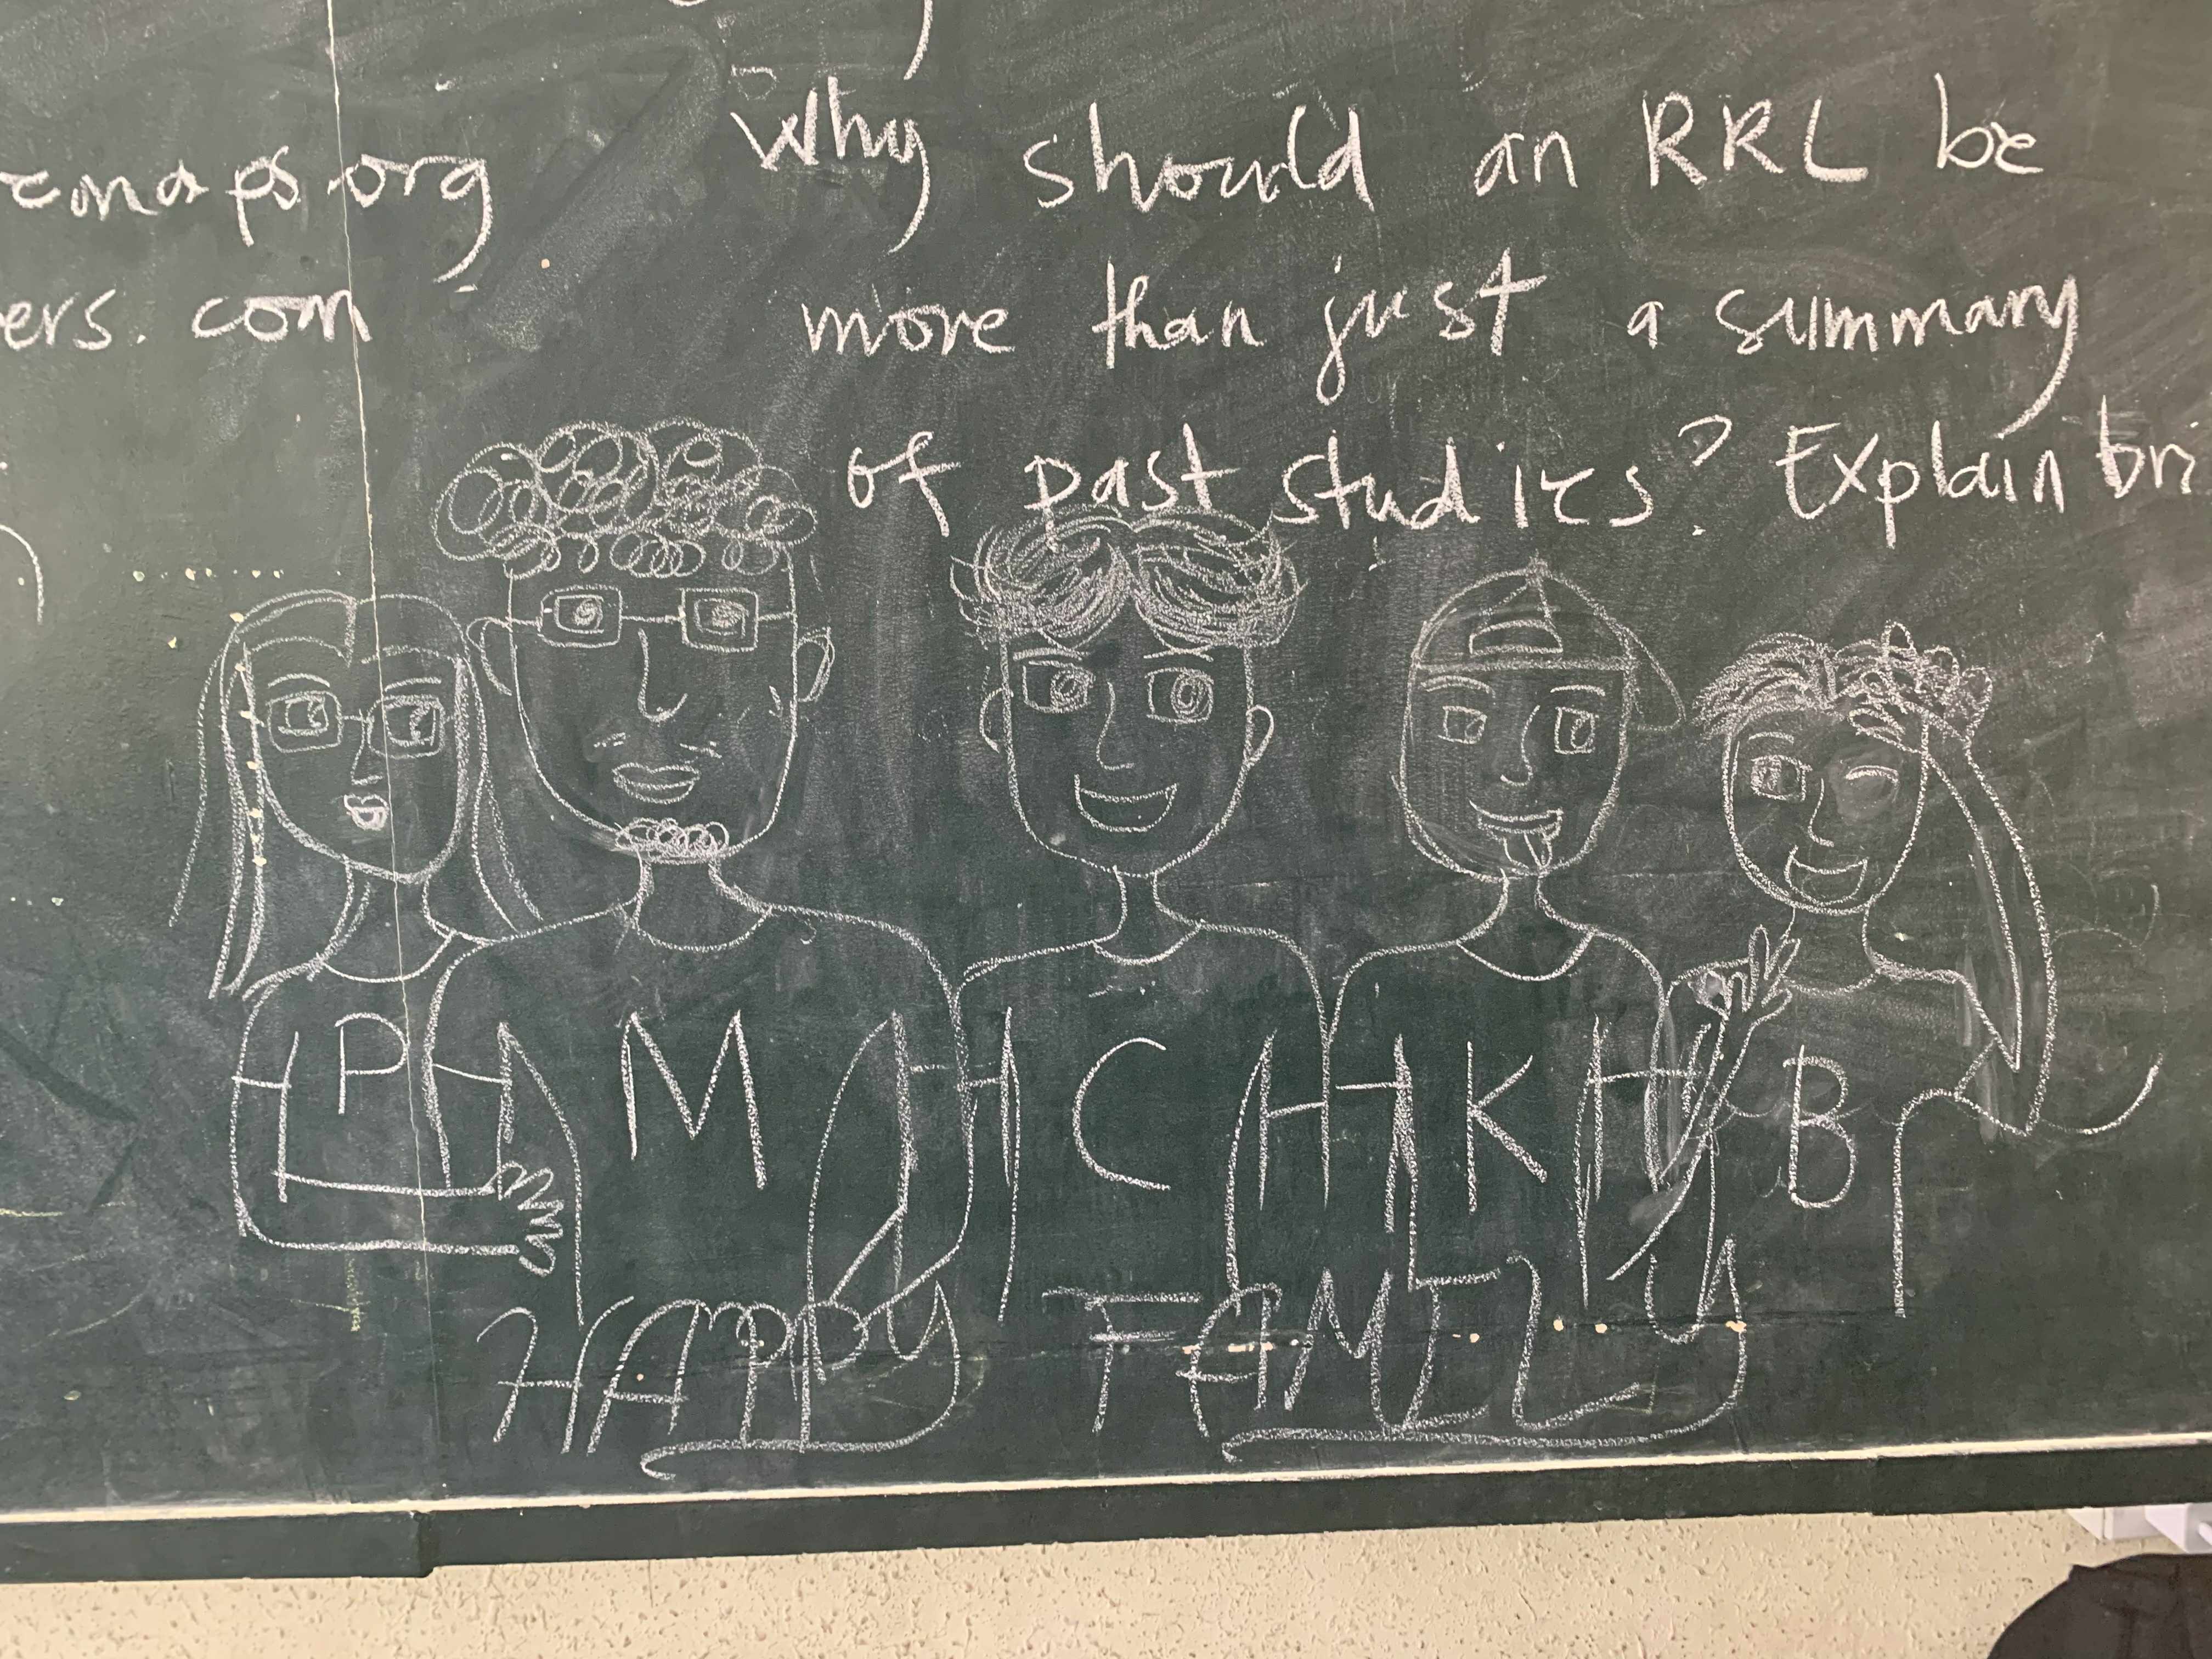 emaps.org
ers.com
Why should an RRL be
more than just a summary
of past studies? Explain bri
P M C K B
HAPPY FAMILY